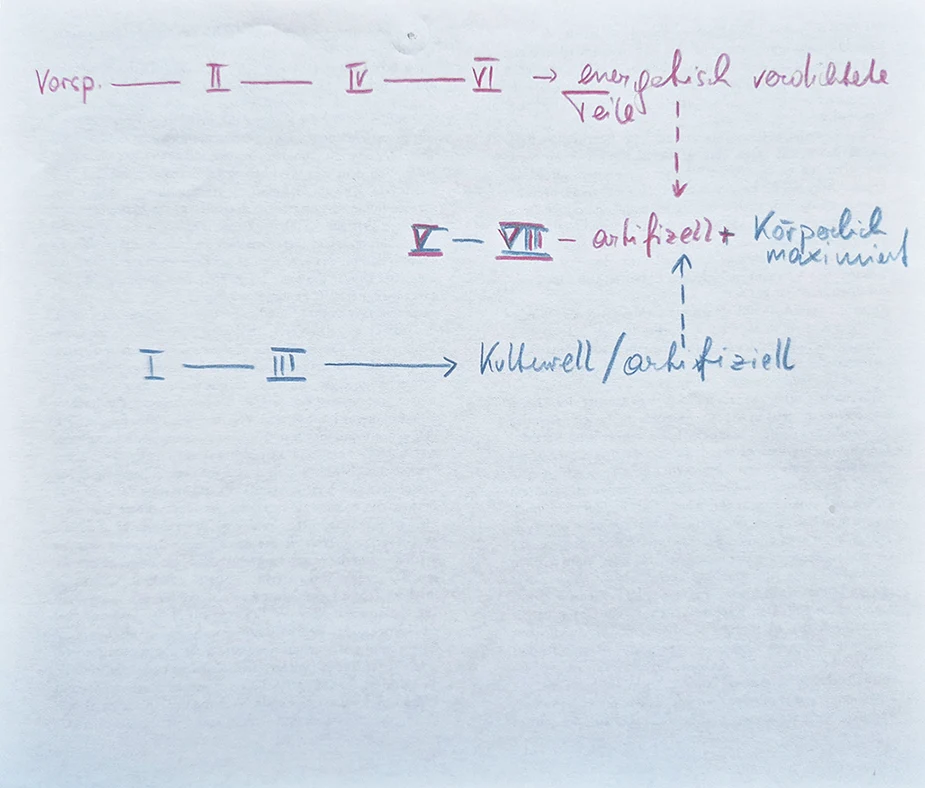 Vorsp. — II — IV — VI → energetisch verdichtete
Teile
V — VIII – artifizell + Körperlich
maximiert
I — III → Kulturell / artifiziell